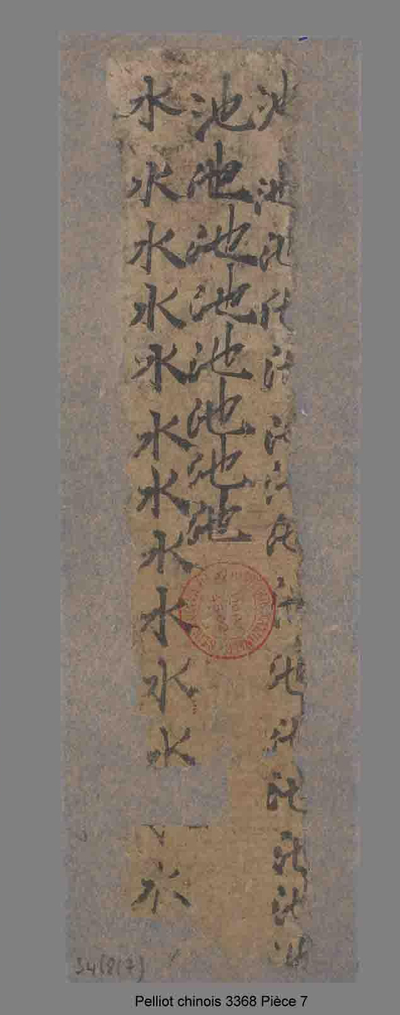 池池池池池池池池池池池池池池池
池池池池池池池池
水水水水水水水水水水水水
Pelliot chinois 3368 Pièce 7